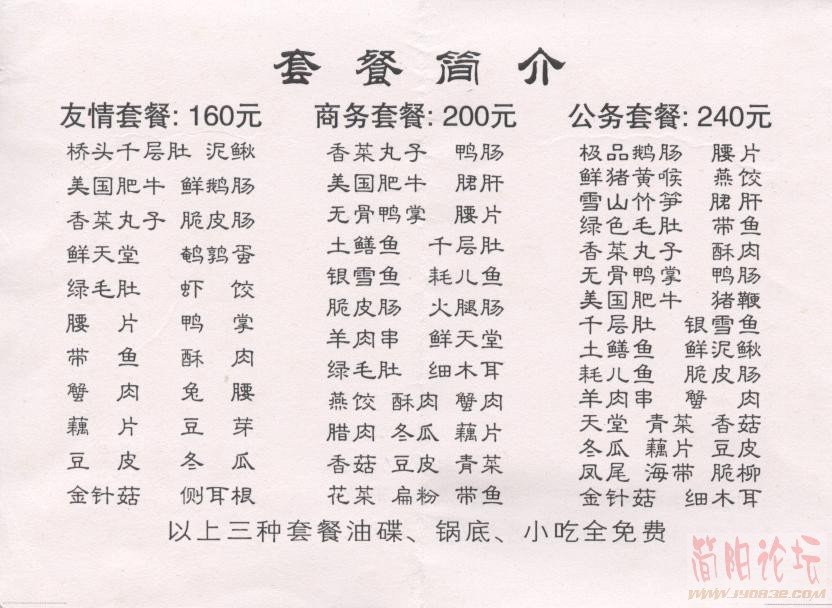 套餐简介
友情套餐: 160元
桥头千层肚 泥鳅
美国肥牛 鲜鹅肠
香菜丸子 脆皮肠
鲜天堂 鹌鹑蛋
绿毛肚 虾饺
腰片 鸭掌
带鱼 酥肉
蟹肉 兔腰
藕片 豆芽
豆皮 冬瓜
金针菇 侧耳根
商务套餐: 200元
香菜丸子 鸭肠
美国肥牛 䐃肝
无骨鸭掌 腰片
土鳝鱼 千层肚
银雪鱼 耗儿鱼
脆皮肠 火腿肠
羊肉串 鲜天堂
绿毛肚 细木耳
燕饺 酥肉 蟹肉
腊肉 冬瓜 藕片
香菇 豆皮 青菜
花菜 扁粉 带鱼
公务套餐: 240元
极品鹅肠 腰片
鲜猪黄喉 燕饺
雪山竹笋 䐃肝
绿色毛肚 带鱼
香菜丸子 酥肉
无骨鸭掌 鸭肠
美国肥牛 猪鞭
千层肚 银雪鱼
土鳝鱼 鲜泥鳅
耗儿鱼 脆皮肠
羊肉串 蟹肉
天堂 青菜 香菇
冬瓜 藕片 豆皮
凤尾 海带 脆柳
金针菇 细木耳
以上三种套餐油碟、锅底、小吃全免费
简阳论坛
WWW.JY0832.COM